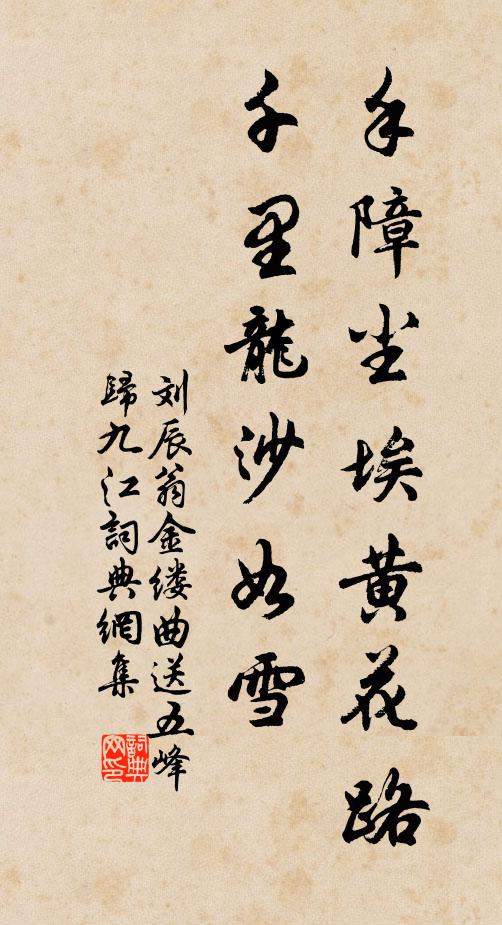 手障尘埃黄花路
千里龍沙如雪
刘辰翁金缕曲送五峰
歸九江詞典網集
詞典网印